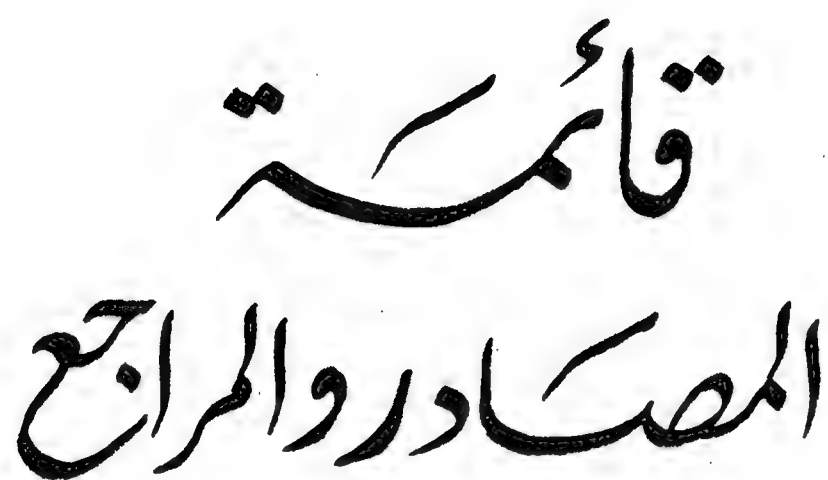 قائمَة
المصَادر والمراجع